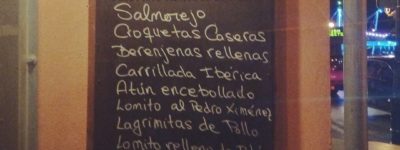 Salmorejo
Croquetas Caseras
Berenjenas rellenas
Carrillada Ibérica
Atún encebollado
Lomito al Pedro Ximénez
Lagrimitas de Pollo
Lomito relleno de